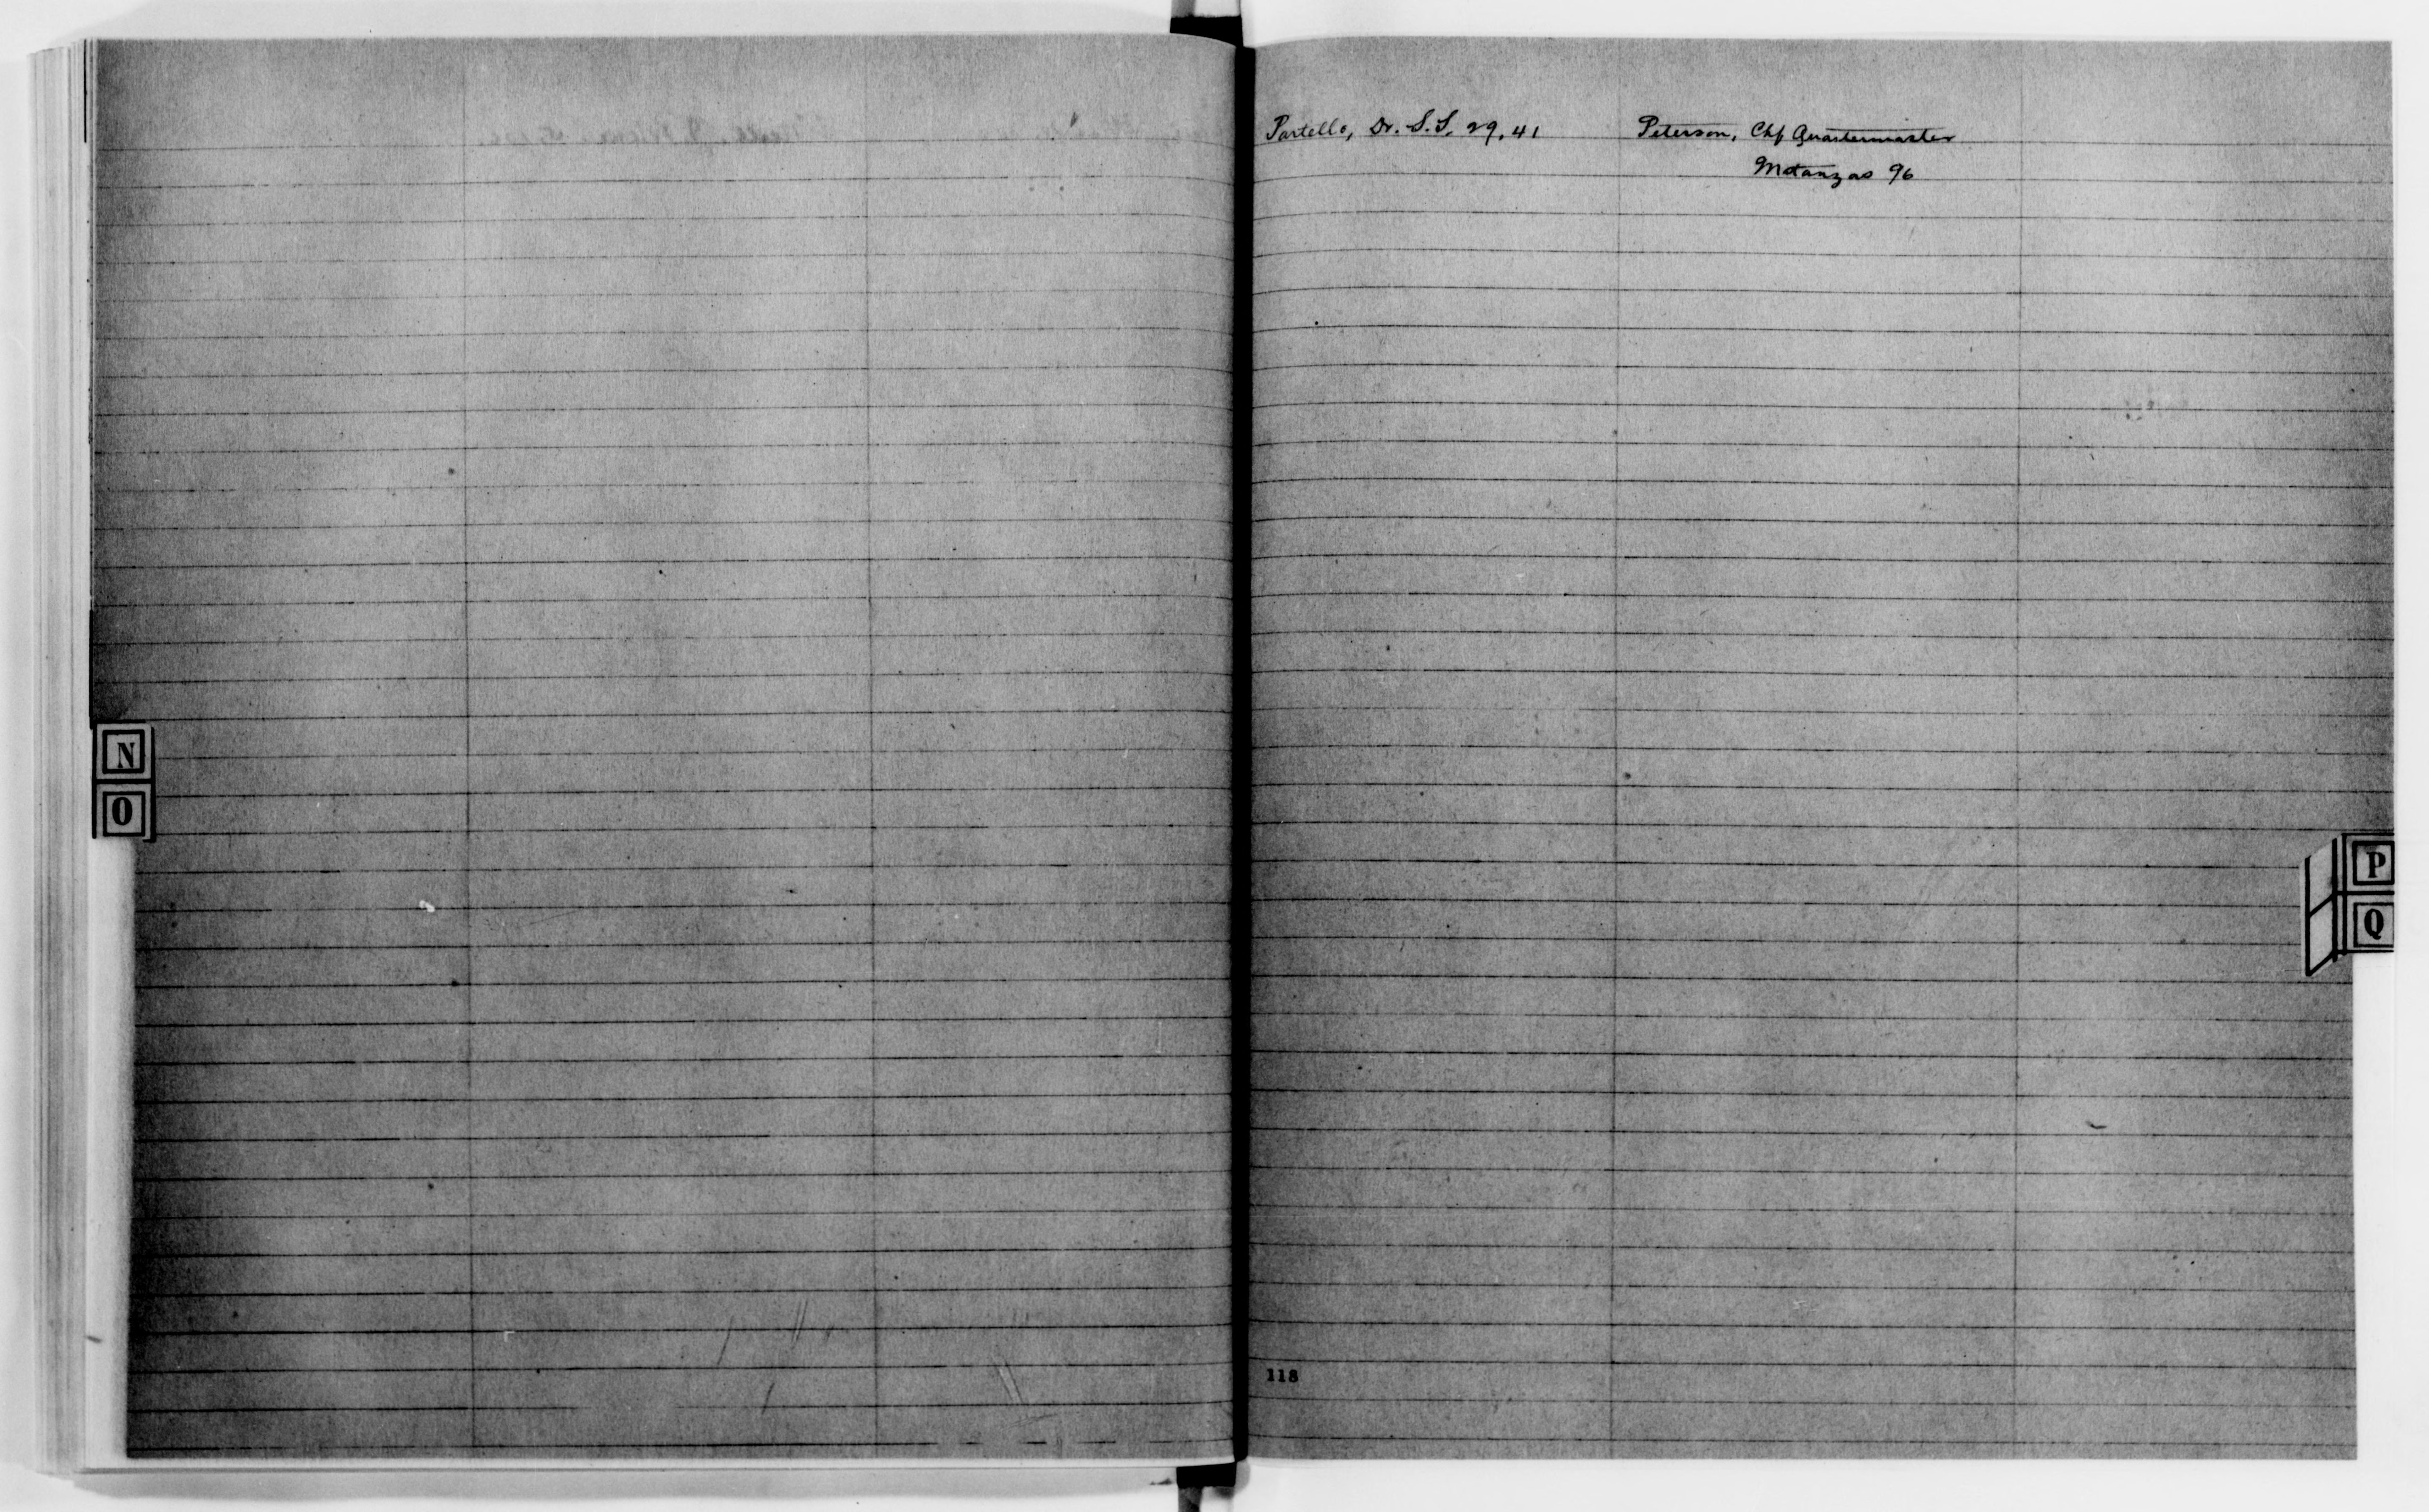 N
O
Partello, Dr. S.S. 29, 41
Peterson, Chf Quartermaster
Matanzas 96
P
Q
118